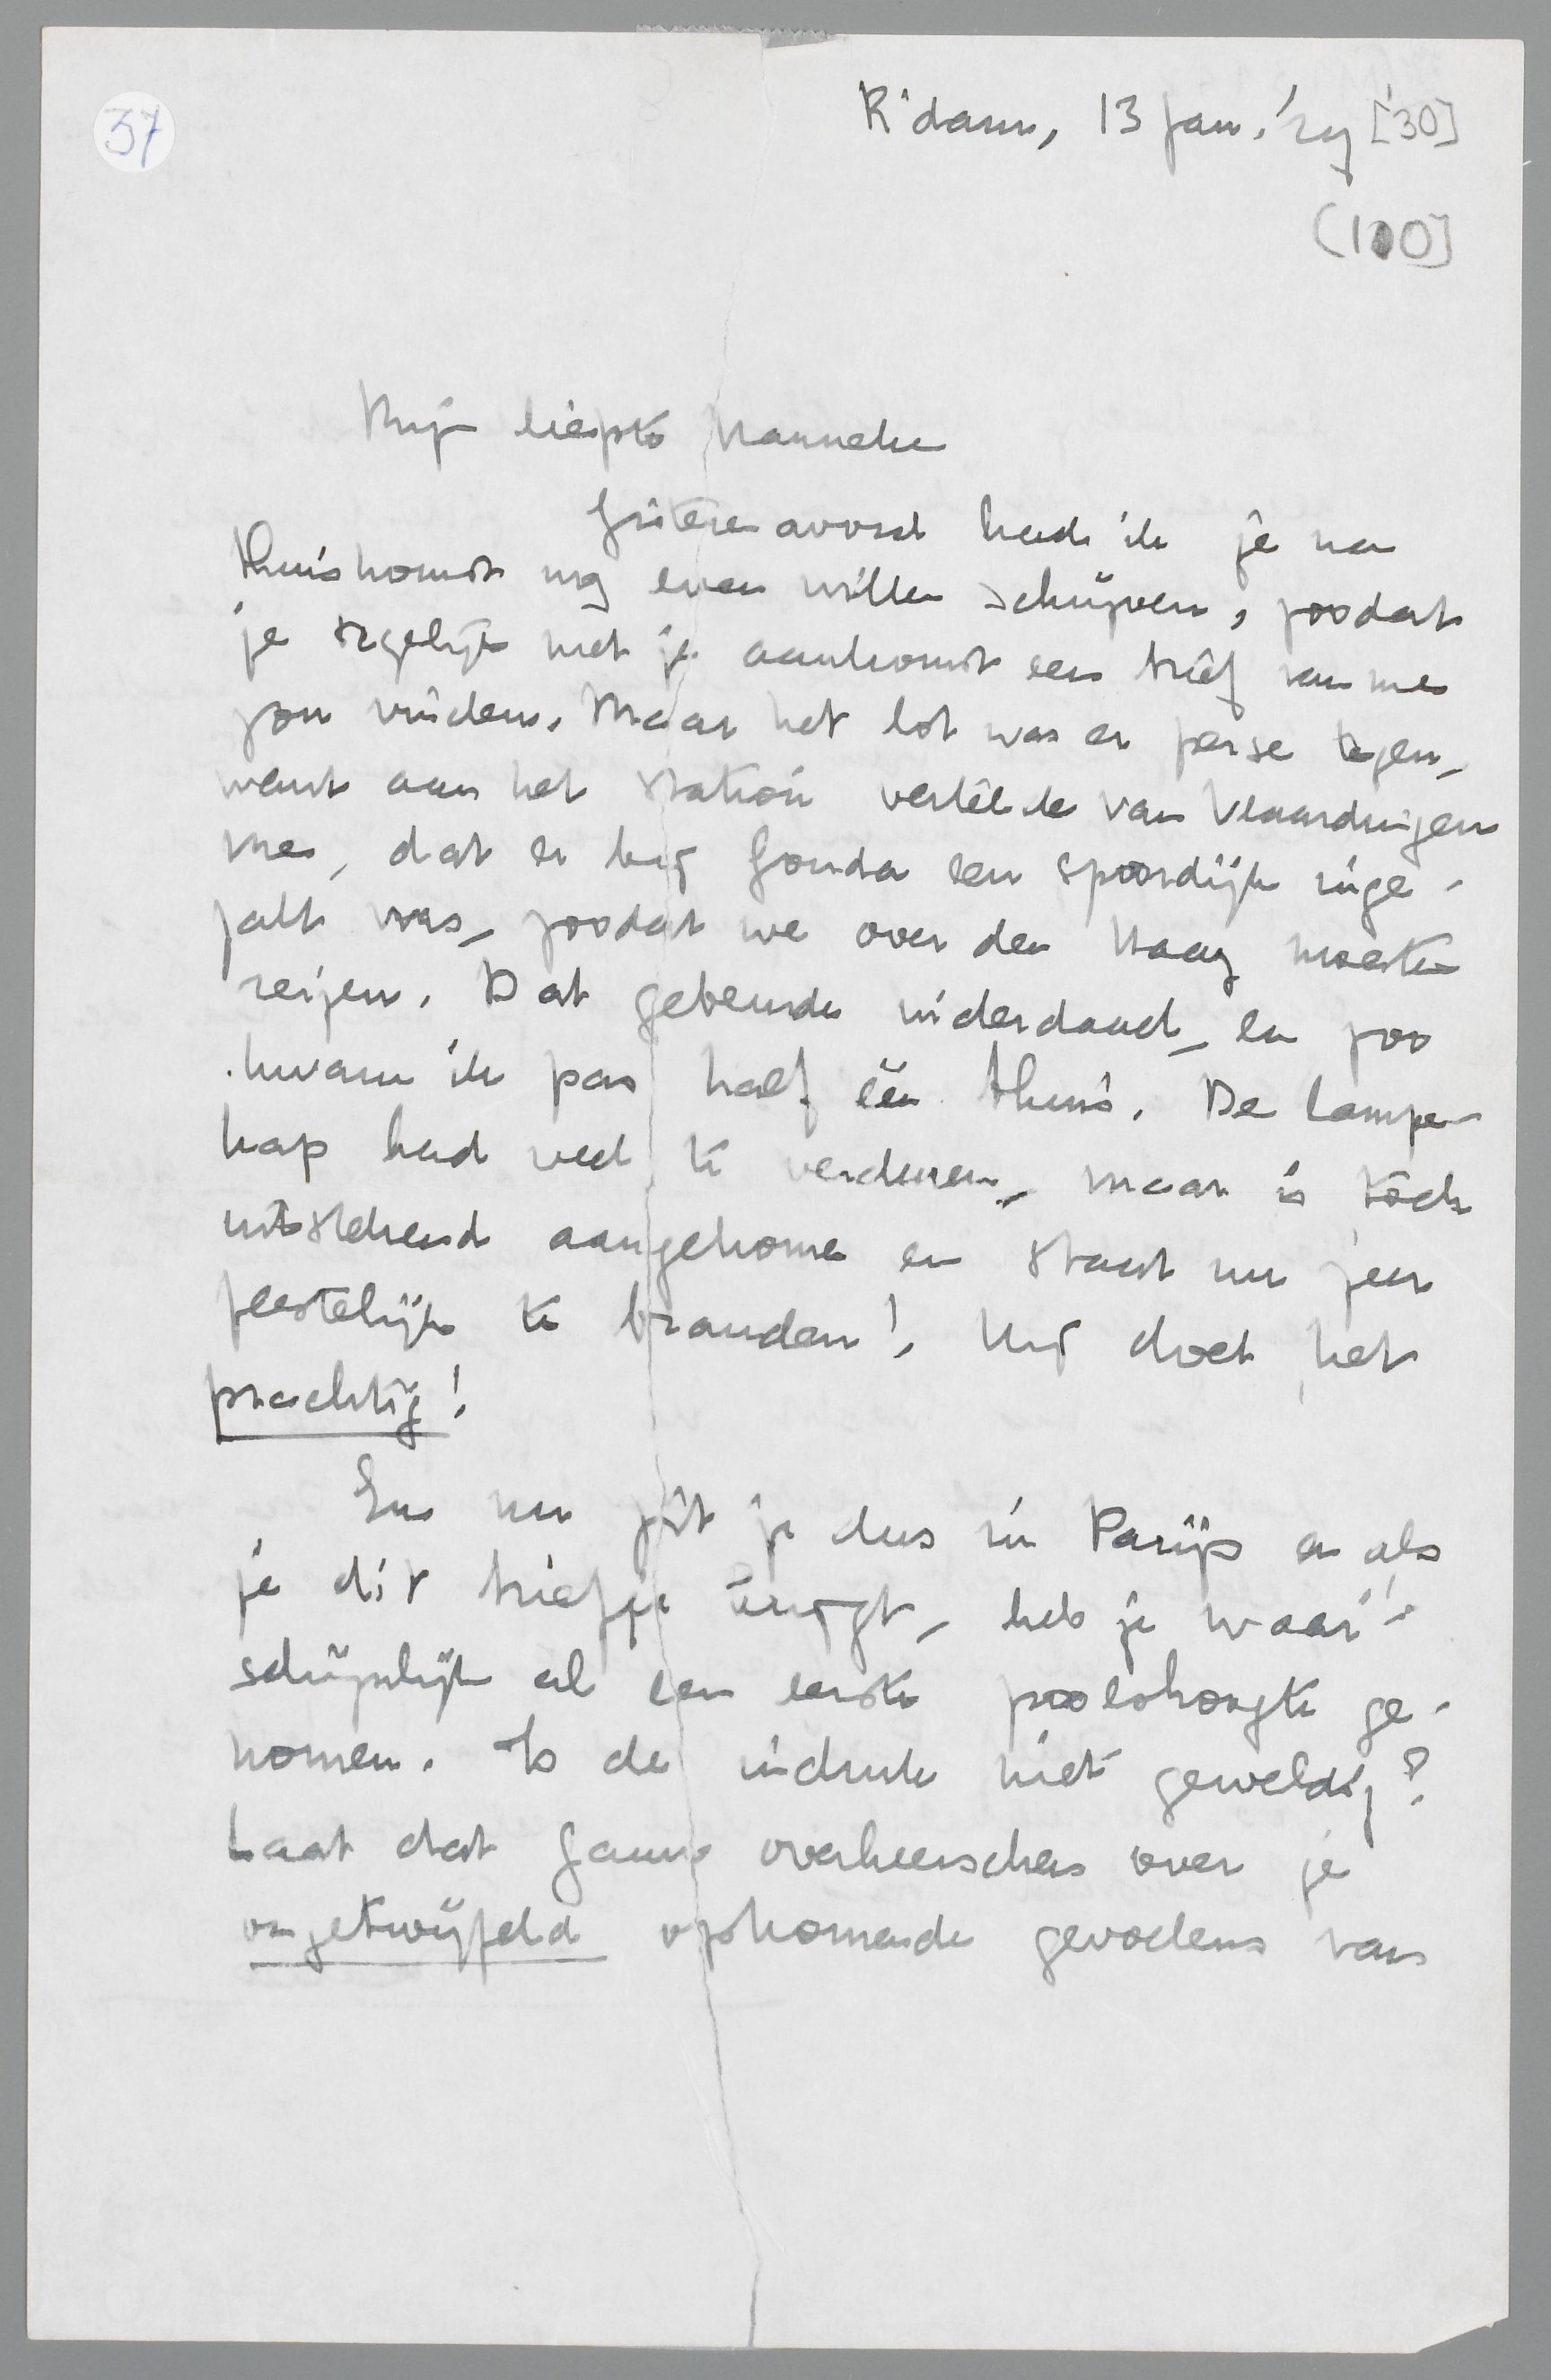 37
R'dam, 13 Jan. '29 ['30]
(100]
Mijn liefste Hanneke
Gisteren avond had ik je na
thuiskomst nog even willen schrijven, zoodat
je tegelijk met je aankomst een brief van me
zou vinden. Maar het lot was er perse tegen,
want aan het station vertelde van Vlaardingen
me, dat er bij Gouda een spoordijk inge-
zakt was, zoodat we over den Haag moesten
reizen. Dat gebeurde inderdaad, en zoo
kwam ik pas half één thuis. De lampe-
kap had veel te verduren, maar is tóch
uitstekend aangekomen en staat nu zeer
feestelijk te branden! Hij doet het
prachtig!
En nu zit je dus in Parijs en als
je dit briefje krijgt, heb je waar-
schijnlijk al een eerste poolshoogte ge-
nomen. Is de indruk niet geweldig?
Laat dat gauw overheerschen over je
ongetwijfeld opkomende gevoelens van